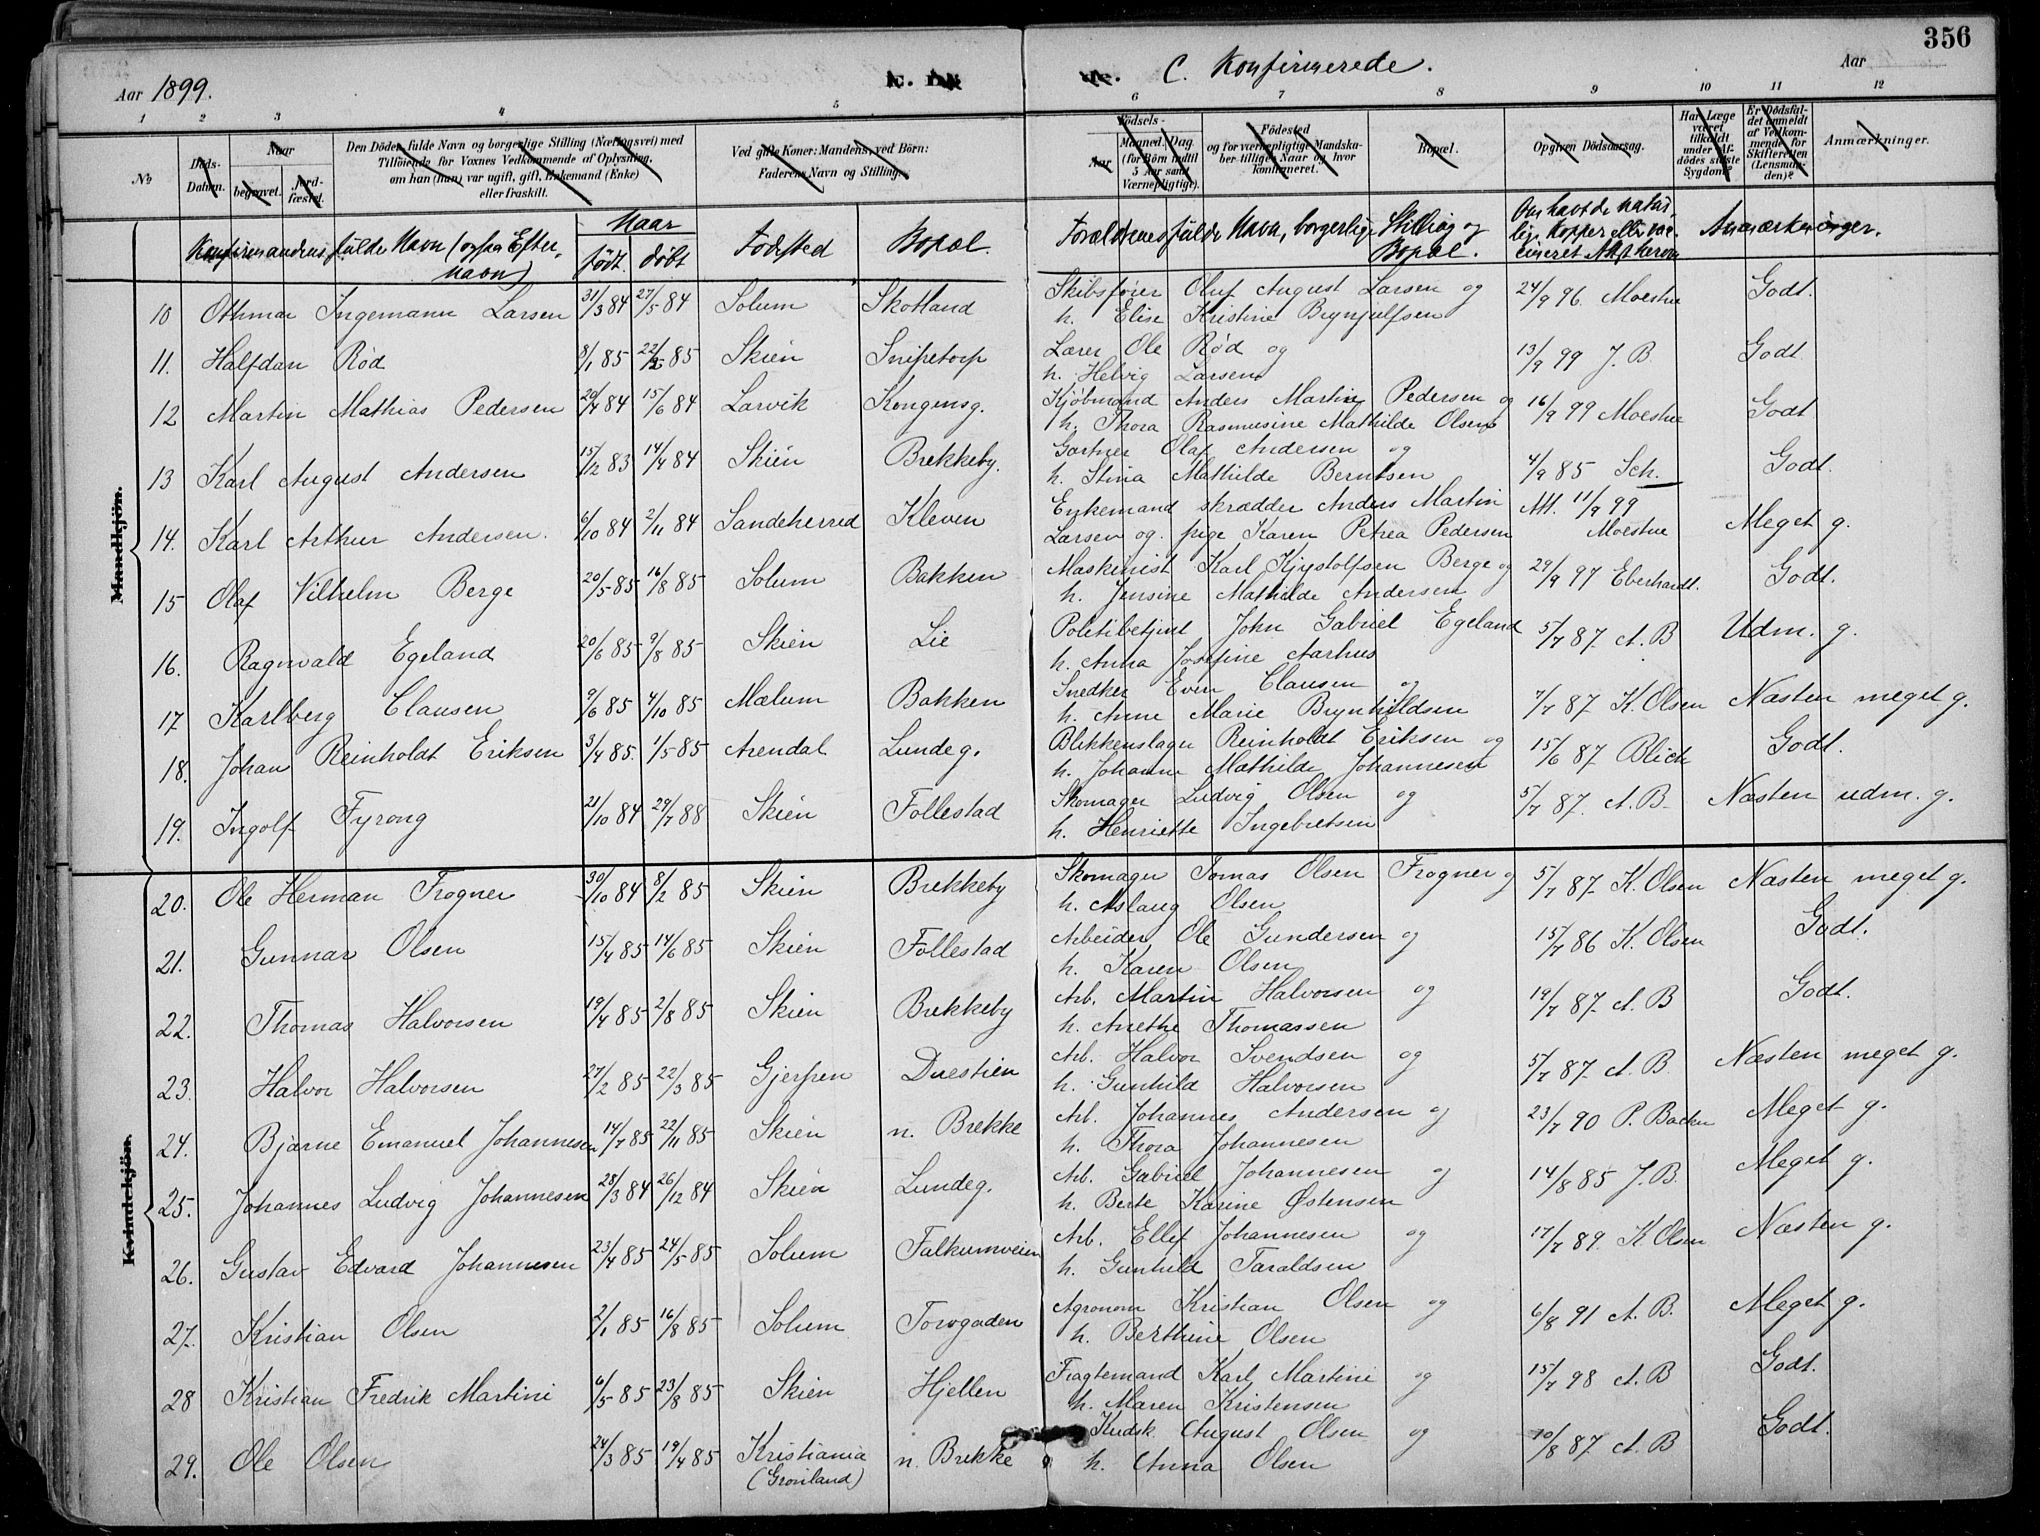 356
Aar 1899.
C. Konfirmerede.
Aar
1 2 3 4 5 6 7 8 9 10 11 12
No
Døds-Datum.
Naar
begravet.
Jord-fæstet.
Den Dödes fulde Navn og borgerlige Stilling (Næringsvei) med
Tilföiende for Voxnes Vedkommende af Oplysning,
om han (hun) var ugift, gift, Enkemand (Enke)
eller fraskilt.
Ved gifte Koner: Mandens, ved Börn:
Faderens Navn og Stilling.
Födsels-
Aar
Maaned, Dag
(for Börn indtil
5 Aar samt
Værnepligtige).
Födested
og for værnepligtige Mandska-
ber tillige Naar og hvor
konfirmeret.
Bopæl.
Opgiven Dödsaarsag.
Har Læge
været
tilkaldt
under Af-
dödes sidste
Sygdom?
Er Dödsfal-
det anmeldt
af Vedkom-
mende for
Skifteretten
(Lensman-
den)?
Anmærkninger.
Konfirmandens fulde Navn (ogsaa Efter-
navn)
Naar
født. døbt
Fødested
Bopæl.
Forældrenes fulde Navn, borgerlige Stilling og
Bopæl.
Om havt de natur-
lige Kopper eller vac-
cineret Attst herom
Anmærkninger.
Mandkjön.
10 Othmar Ingemann Larsen 31/3 84 27/5 84 Solum Skotland Skibsfører Oluf August Larsen og 24/9 96. Moestue Godt.
h. Elise Kristine Brynjulfsen
11. Halfdan Rød 8/1 85 22/2 85 Skien Snipetorp Lærer Ole Rød og 13/9 99 J. B Godt
h. Helvig Larsen
12 Martin Mathias Pedersen 20/4 84 15/6 84 Larvik Kongensg. Kjøbmand Anders Martin Pedersen og 16/9 99 Moestue Godt
h. Thora Rasmusine Mathilde Olsen
13 Karl August Andersen 15/2 83 14/4 84 Skien Brekkeby. Gartner Olaf Andersen og 4/9 85 Sch. Godt.
h. Stina Mathilde Berntsen
14. Karl Arthur Andersen. 6/10 84 2/11 84 Sandeherred Kleven Enkemand skrædder Anders Martin Att. 11/9 99 Meget g.
Larsen og pige Karen Petrea Pedersen Moestue
15 Olaf Vilhelm Berge 20/5 85 16/8 85 Solum Bakken Maskinist Karl Kjystolfsen Berge og 29/9 97 Eberhardt. Godt.
h. Jensine Mathilde Andersen
16. Ragnvald Egeland 20/6 85 9/8 85 Skien Lie Politibetjent John Gabriel Egeland 5/7 87. A. B Udm. g.
h. Anna Josefine Aarhus
17 Karlberg Clausen 9/6 85 4/10 85 Mælum Bakken Snedker Even Clausen og 7/7 87 K. Olsen Næsten meget g.
h. Anne Marie Brynhildsen
18. Johan Reinholdt Eriksen 3/4 85. 1/5 85 Arendal Lundeg. Blikkenslager Reinholdt Eriksen og 15/6 87 Blich Godt.
h. Johanne Mathilde Johannesen
19. Ingolf Fyrong 21/10 84 29/7 88 Skien Follestad Skomager Ludvig Olsen og 5/7 87. A. B. Næsten udm. g.
h. Henriette Ingebretsen
Kvindekjön.
20. Ole Herman Frogner 30/10 84 8/2 85 Skien Brekkeby Skomager Tomas Olsen Frogner og 5/7 87. K. Olsen Næsten meget g.
h. Aslaug Olsen
21. Gunnar Olsen 15/4 85 14/6 85 Skien Follestad Arbeider Ole Gundersen og 15/7 86 K. Olsen Godt.
h. Karen Olsen
22. Thomas Halvorsen 19/4 85 2/8 85 Skien Brekkeby Arb. Martin Halvorsen og 19/7 87. A. B Godt.
h. Anethe Thomassen
23. Halvor Halvorsen 27/2 85 22/3 85 Gjerpen Duestien Arb. Halvor Svendsen og 5/7 87. A. B. Næsten meget g.
h. Gunhild Halvorsen
24. Bjarne Emanuel Johannesen 14/7 85 22/11 85 Skien n. Brekke Arb. Johannes Andersen og 23/7 90 P. Backer Meget g.
h. Thora Johannesen
25. Johannes Ludvig Johannesen 28/3 84 26/12 84 Skien Lundeg. Arb. Gabriel Johannesen og 14/8 85 J. B. Meget g.
h. Berte Karine Østensen
26. Gustav Edvard Johannesen 23/4 85 24/5 85 Solum Falkumveien Arb. Ellef Johannesen og 17/7 89. K Olsen Næsten g.
h. Gunhild Taraldsen
27. Kristian Olsen 2/1 85 16/8 85 Solum Torvgaden Agronom Kristian Olsen og 6/8 91 A. B. Meget g.
h. Berthine Olsen
28 Kristian Fredrik Martini 6/5 85 23/8 85 Skien Hjellen Fragtemand Karl Martini og 15/7 98 A. B Godt.
h. Maren Kristensen
29. Ole Olsen 24/3 85 19/4 85 Kristiania n. Brekke Kudsk August Olsen og 10/8 87 A. B Godt.
(Grønland) h. Anna Olsen